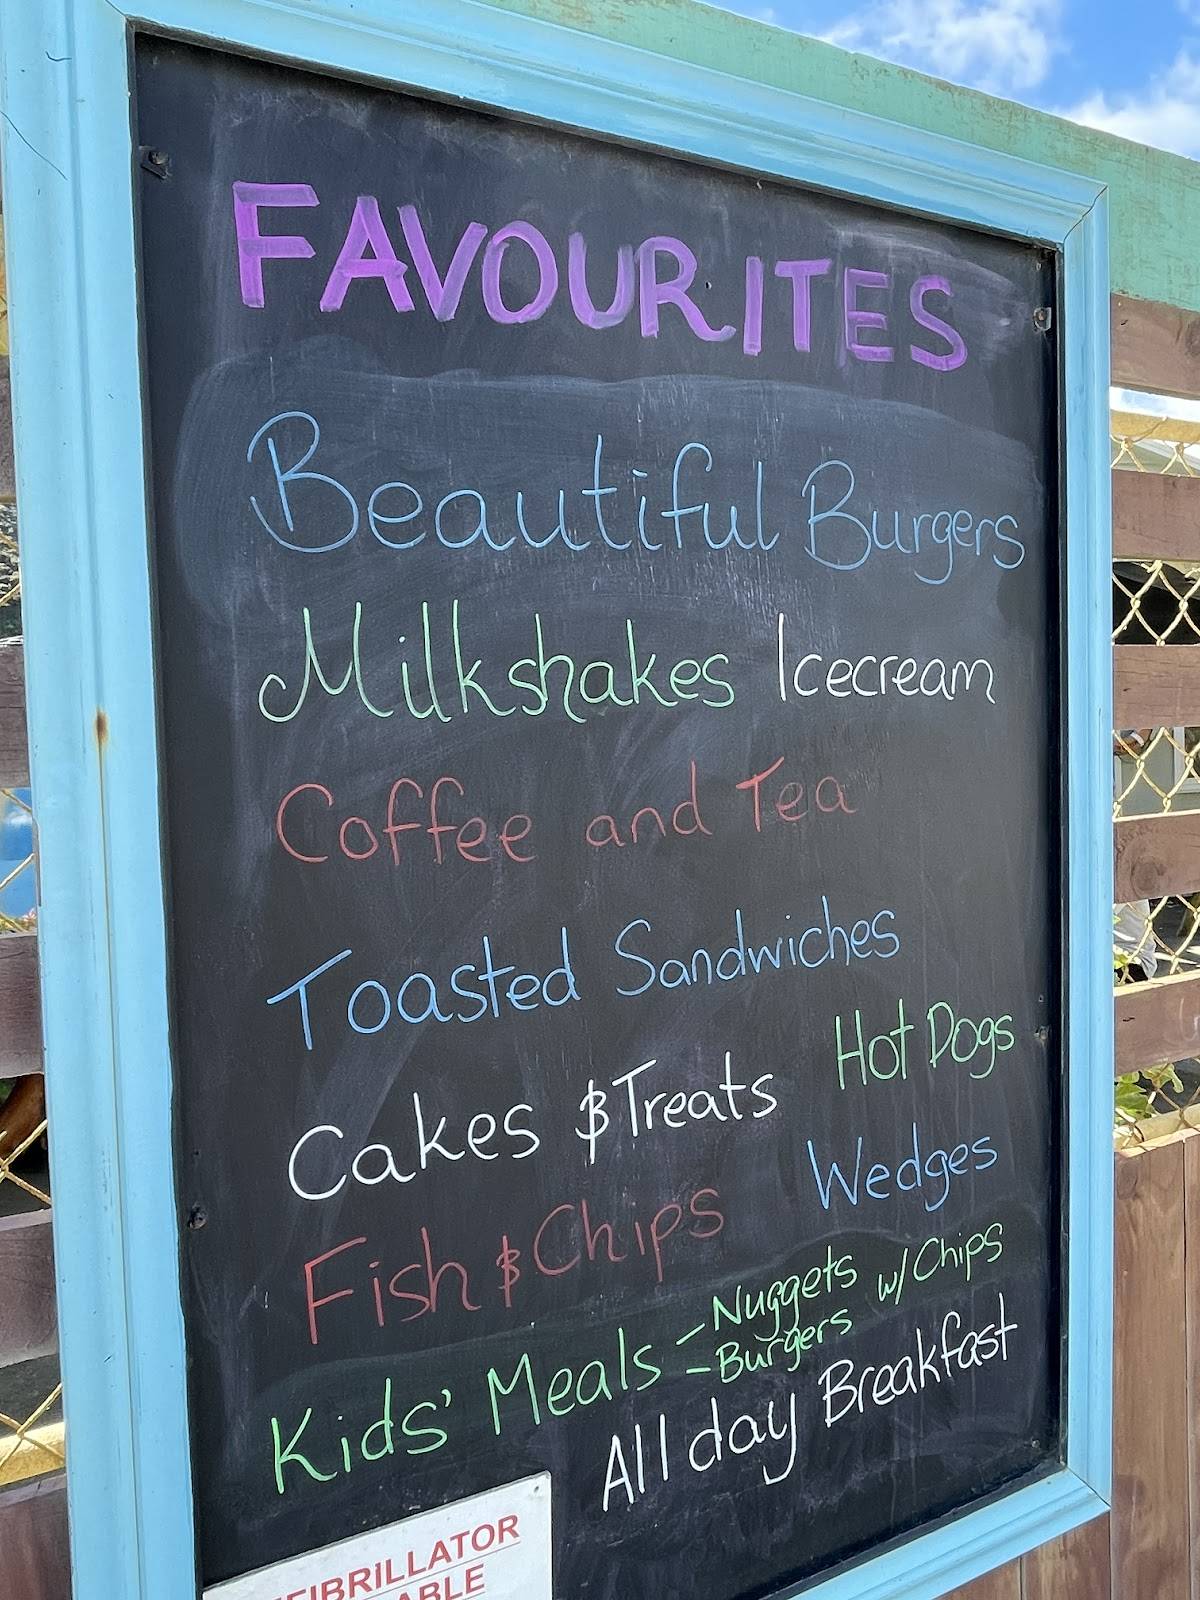 FAVOURITES
Beautiful Burgers
Milkshakes Icecream
Coffee and Tea
Toasted Sandwiches
Hot Dogs
Cakes & Treats
Wedges
Fish & Chips
Kids' Meals - Nuggets w/ Chips
- Burgers
All day Breakfast
FIBRILLATOR
ABLE